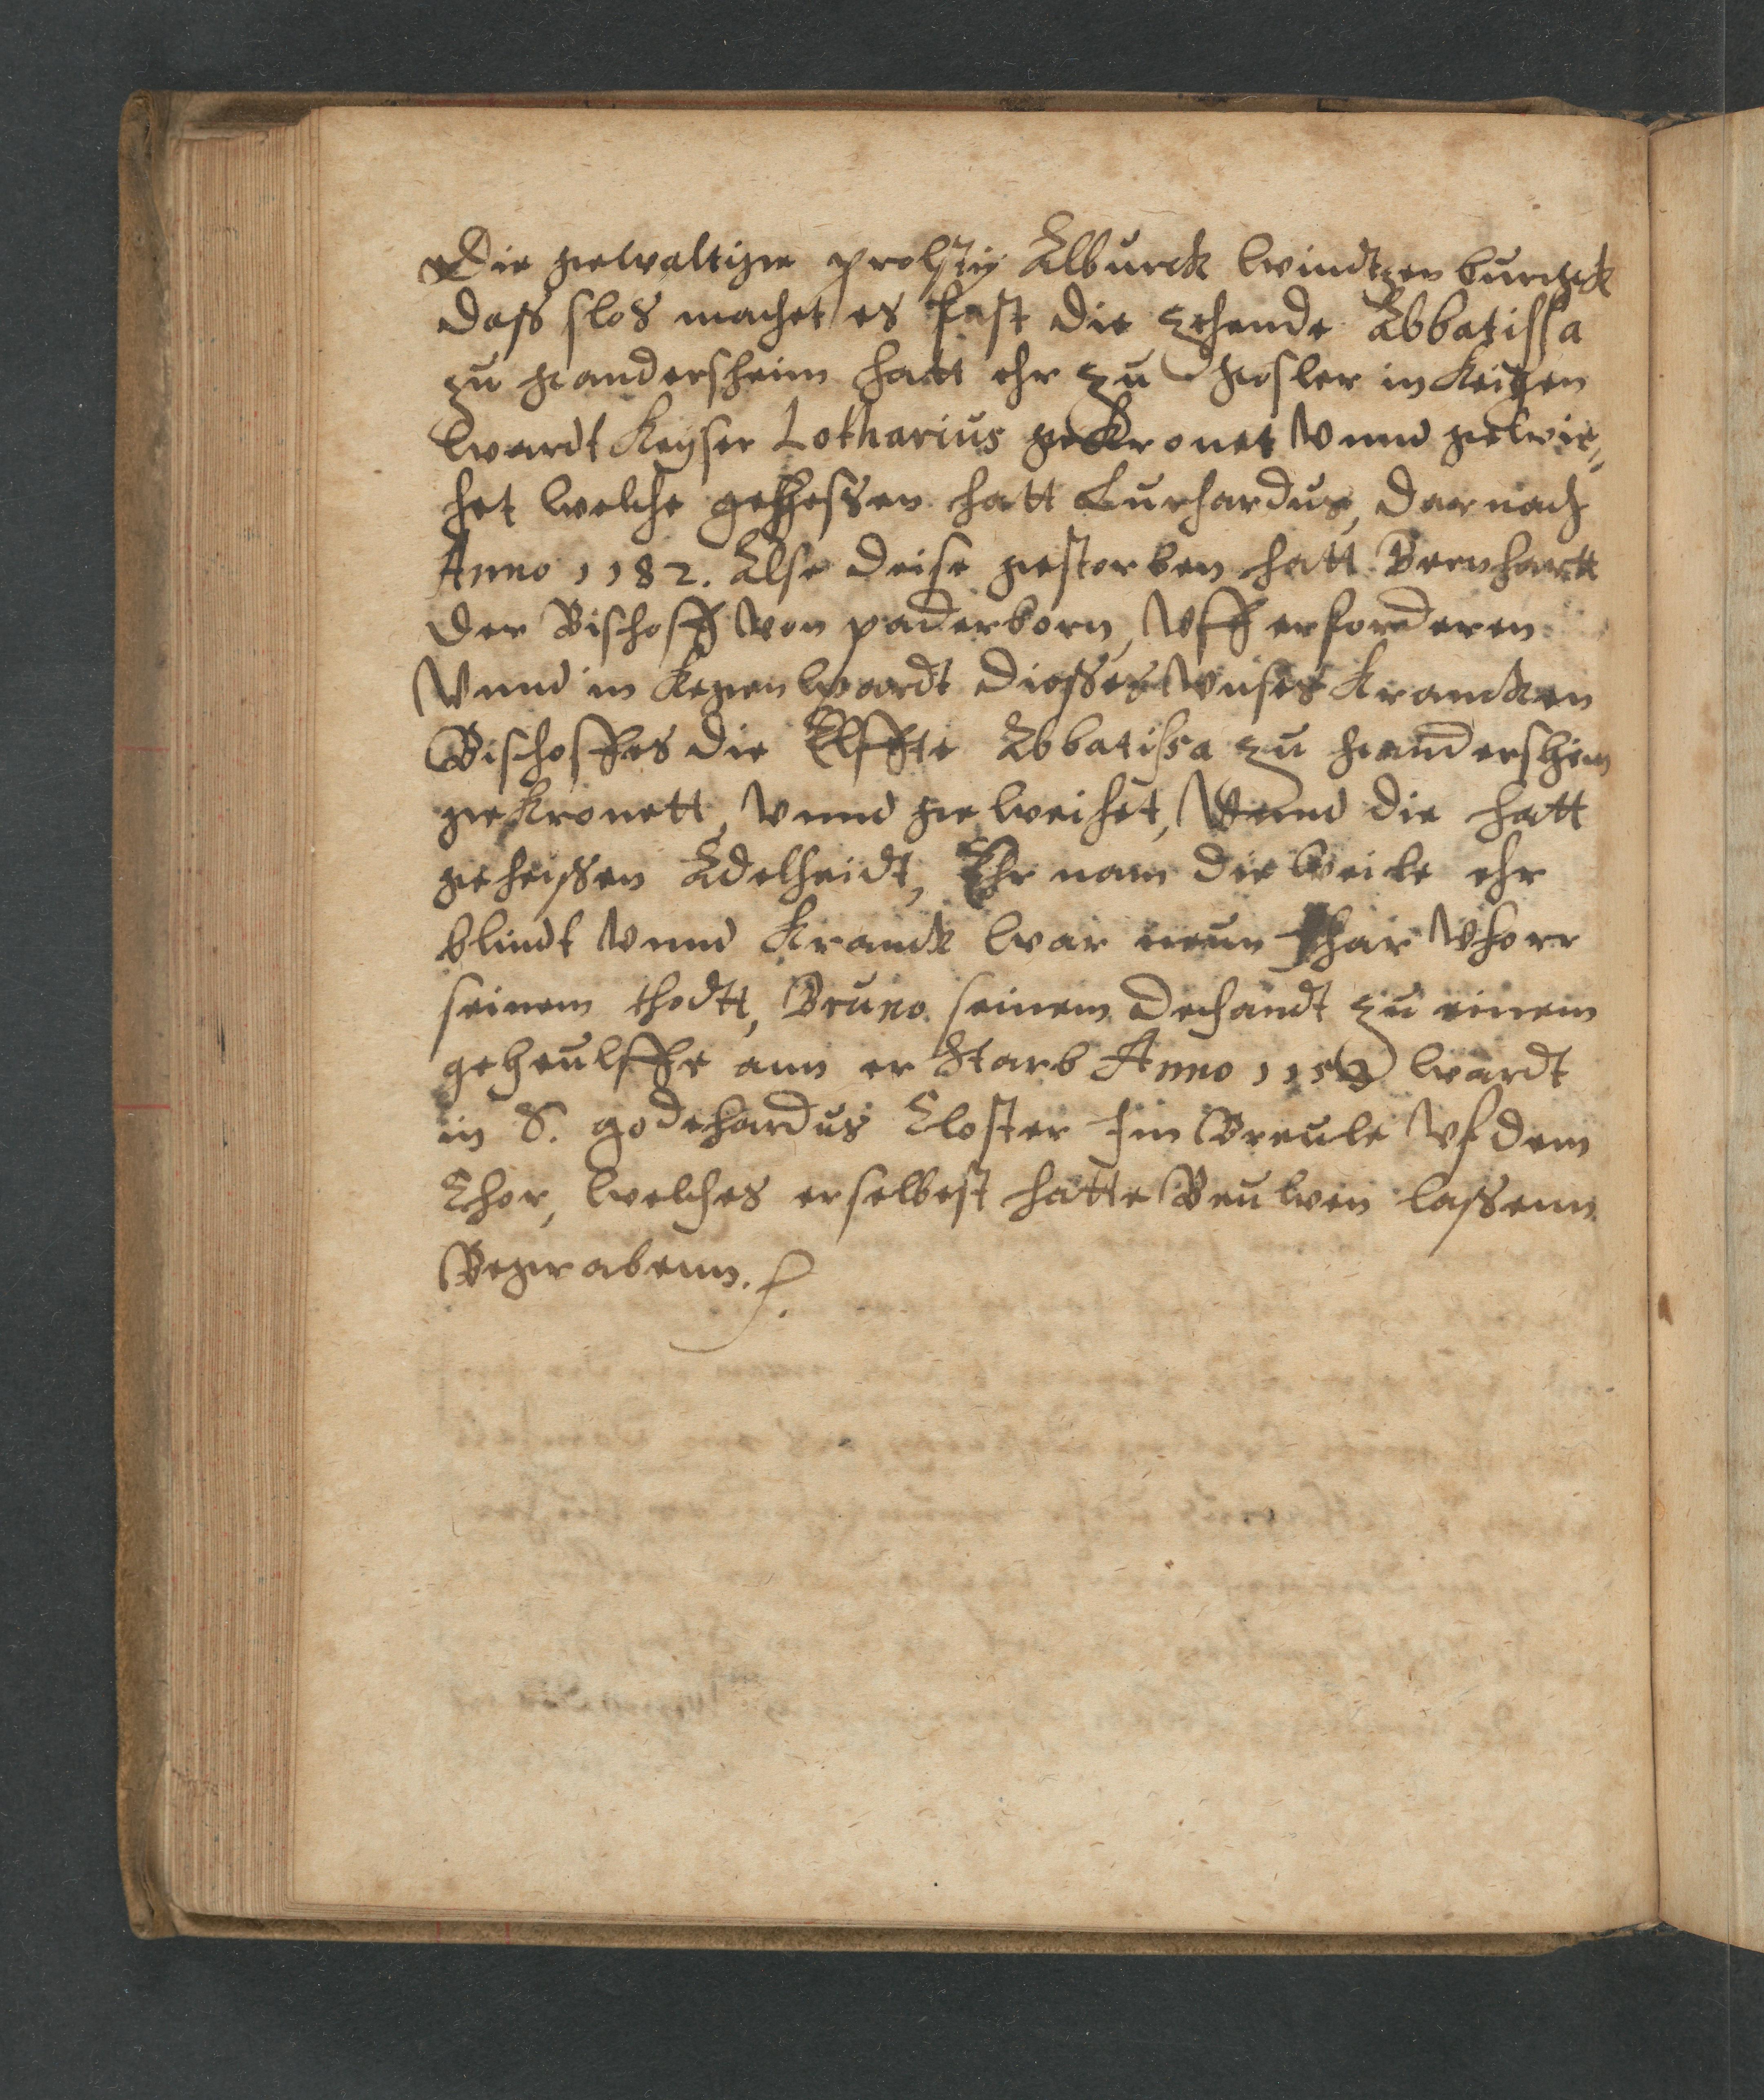 Die gewaltige probstÿ Ælburck windtzenburgck
dass slos machet es fast die zehende Abbatissa
zu gandersheim hatt ehr zu goslar in
wardt Keyser Lotharius gekronet vnnd gewie„
het welche geheissen hatt Lurhardus, darnach
Anno 1182. Alse deise gestorben hatt Bernhartt
der Bischoff von paderborn, vff erforderen
vnnd in kegenwardt diesses vnses krancken
Bischoffes die Elffte Abbatissa zu gandershim
gekronett, vnnd geweihet, vnnd die hatt
geheissen Adelheidt, Ehr nam die weile ehr
blindt vnnd kranck war neun Jhar vhorr
seinem thodtt, Bruno seinem Dechandt zu einem
geheulffe ann er Starb Anno wardt
in S. godehardus Closter Im Breule vf dem
Chor, welches er selbest hatte Beuwen lassenn
Begrabenn.